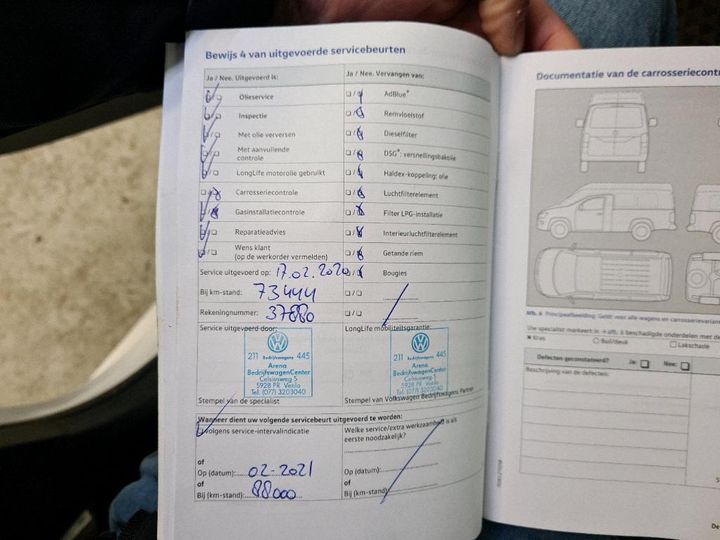 Bewijs 4 van uitgevoerde servicebeurten
Ja / Nee. Uitgevoerd is:
Ja / Nee. Vervangen van:
Olieservice
AdBlue®
Inspectie
Remvloeistof
Met olie verversen
Dieselfilter
Met aanvullende
controle
DSG®: versnellingsbakolie
LongLife motorolie gebruikt
Haldex-koppeling: olie
Carrosseriecontrole
Luchtfilterelement
Gasinstallatiecontrole
Filter LPG-installatie
Reparatieadvies
Interieurluchtfilterelement
Wens klant
(op de werkorder vermelden)
Getande riem
Service uitgevoerd op: 17.02.2020
Bougies
Bij km-stand: 73444
Rekeningnummer: 37880
Service uitgevoerd door:
LongLife mobiliteitsgarantie:
211 Bedrijfswagens 445
Arena
BedrijfswagenCenter
Celsiusweg 5
5928 PR Venlo
Tel. (077) 3203040
211 Bedrijfswagens 445
Arena
BedrijfswagenCenter
Celsiusweg 5
5928 PR Venlo
Tel. (077) 3203040
Stempel van de specialist
Stempel van Volkswagen Bedrijfswagens Partner
Wanneer dient uw volgende servicebeurt uitgevoerd te worden:
volgens service-intervalindicatie
Welke service/extra werkzaamheid is als
eerste noodzakelijk?
of
Op (datum): 02-2021
of
Bij (km-stand): 88000
Op (datum):
of
Bij (km-stand):
Documentatie van de carrosseriecontr
Afb. 6 Principeafbeelding: Geldt voor alle wagens en carrosserievarian
Uw specialist markeert in → afb. 6 beschadigde onderdelen met de
Kras
Buil/deuk
Lakschade
Defecten geconstateerd? Ja: Nee:
Beschrijving van de defecten: